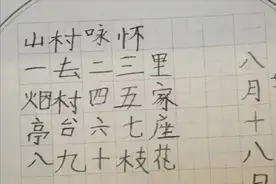 山村咏怀
一去二三里
烟村四五家
亭台六七座
八九十枝花
八月十八日